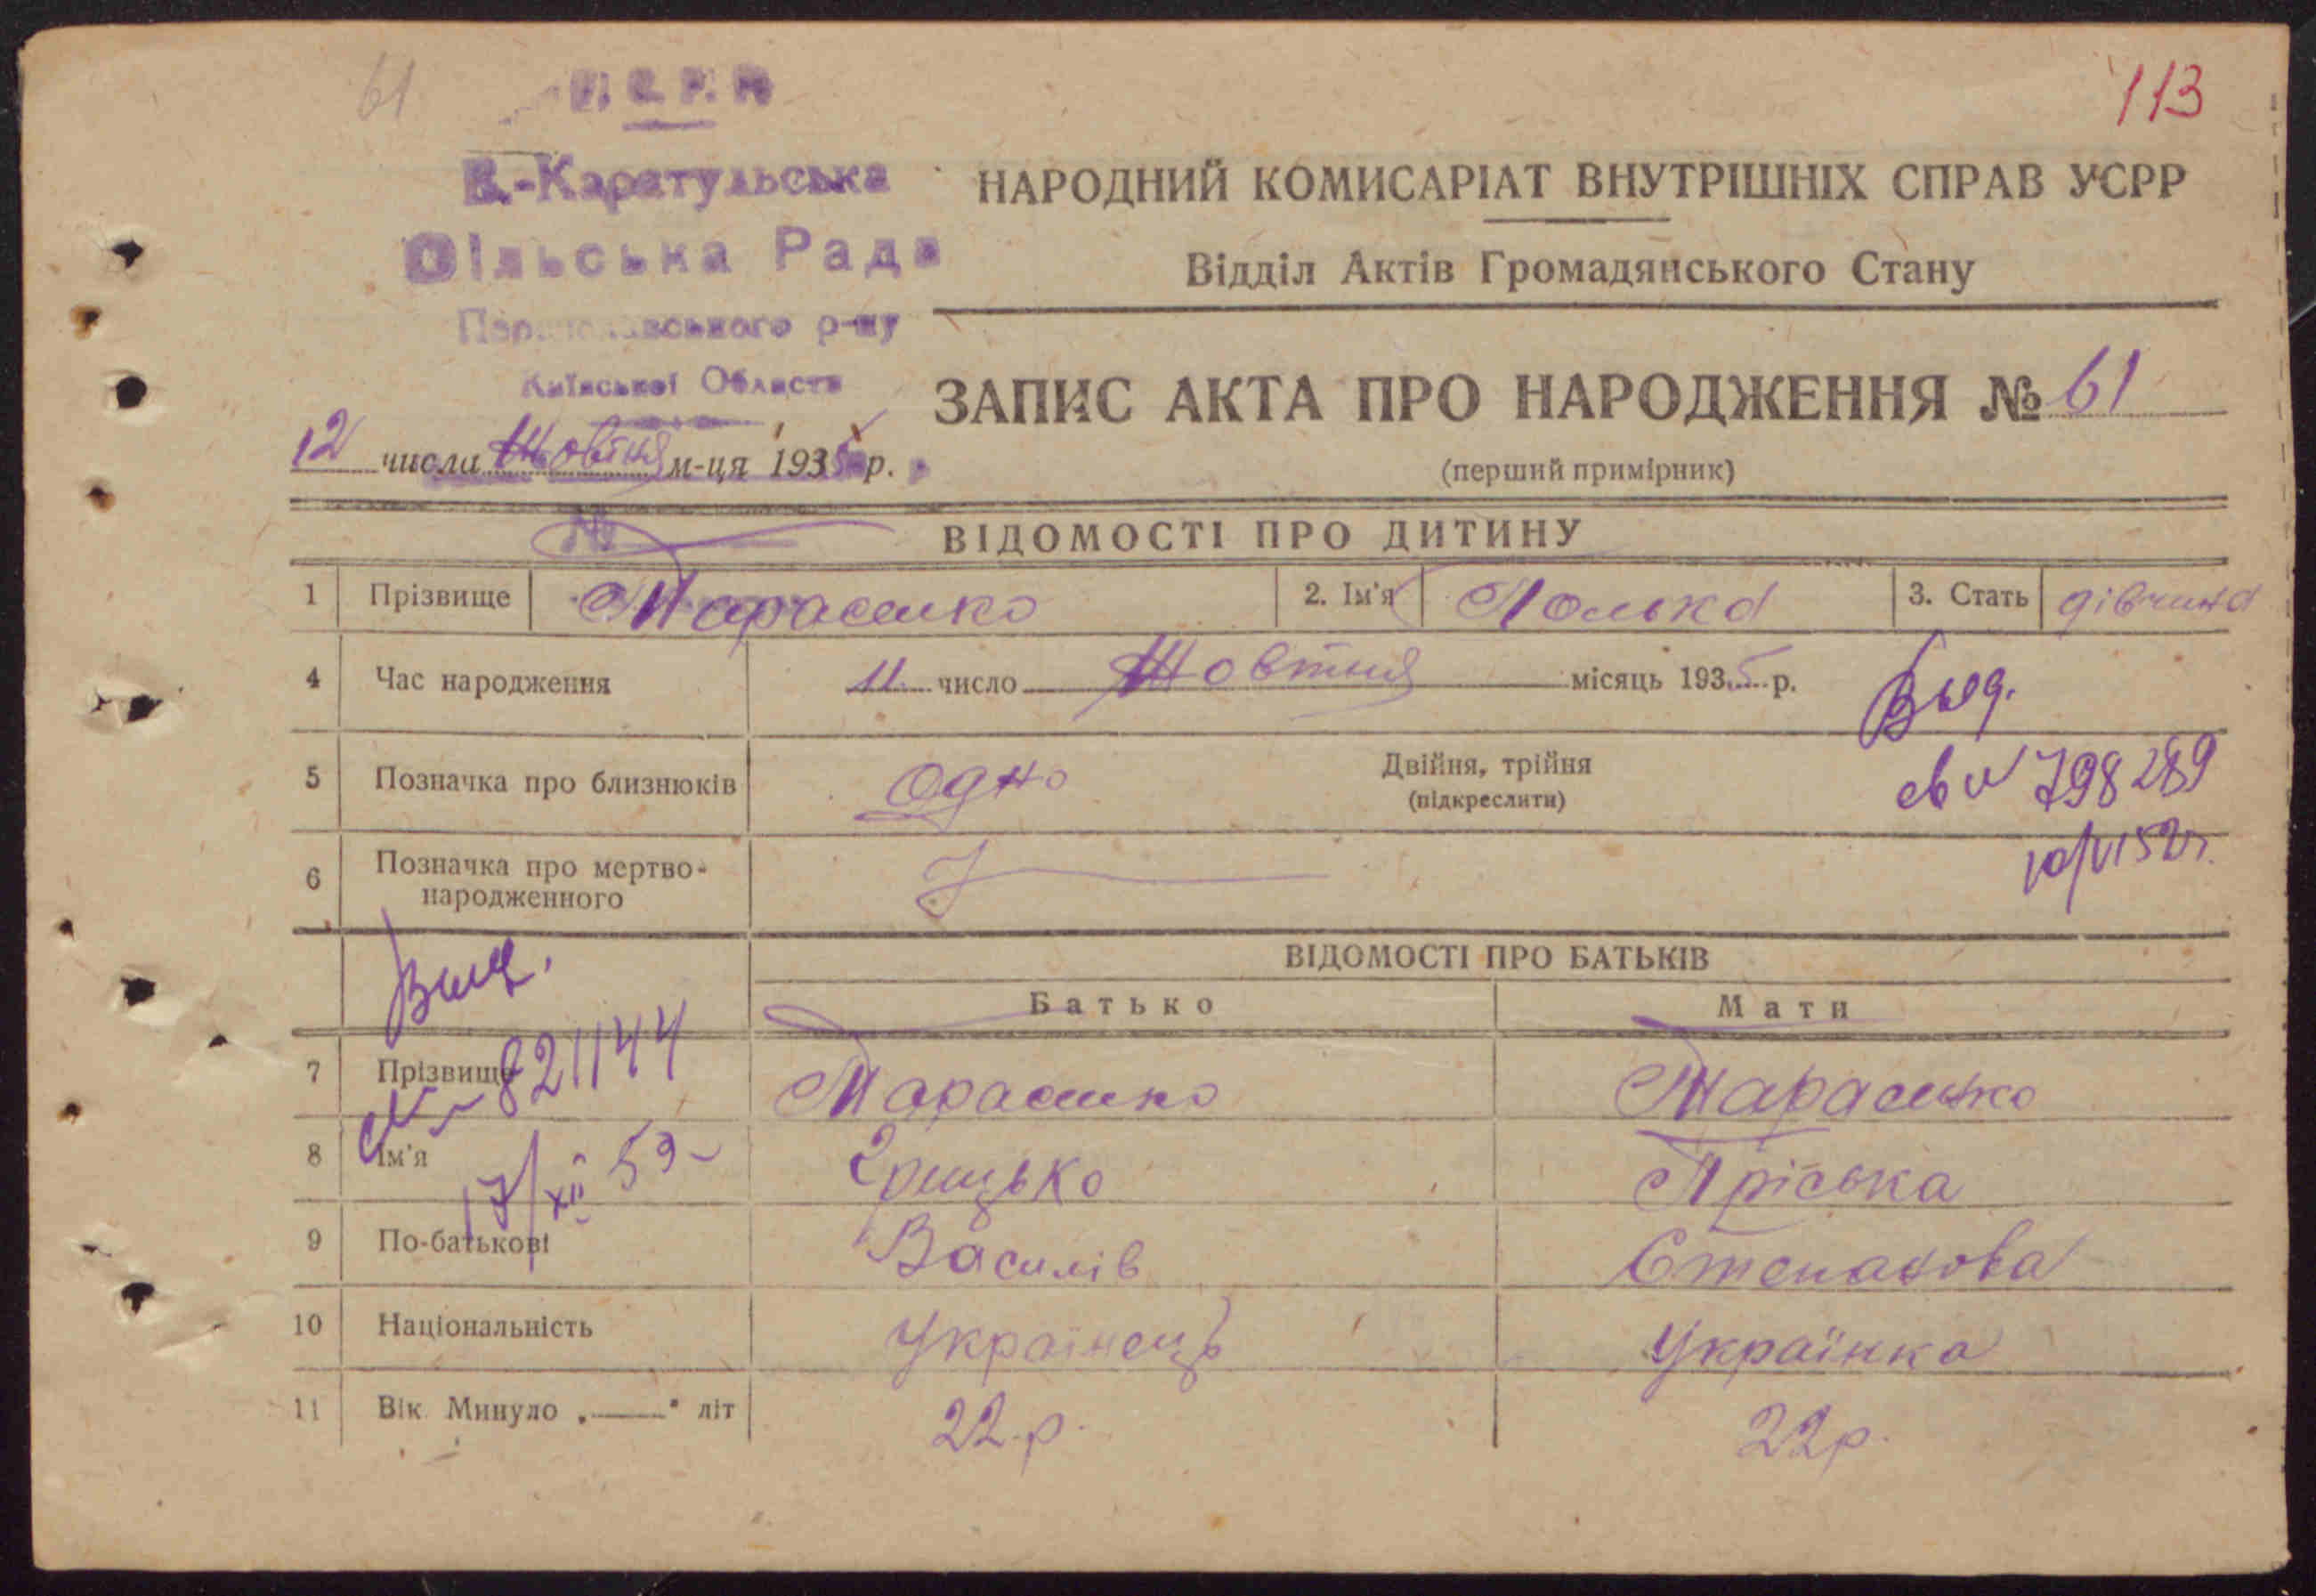 61
У.С.Р.Р.
113
В.-Каратульська
Сільська Рада
Переяславського р-ну
Київської Области
НАРОДНИЙ КОМИСАРІАТ ВНУТРІШНІХ СПРАВ УСРР
Відділ Актів Громадянського Стану
ЗАПИС АКТА ПРО НАРОДЖЕННЯ № 61
12 числа Жовтня м-ця 1935 р.
(перший примірник)
№
ВІДОМОСТІ ПРО ДИТИНУ
1 Прізвище Тарасенко 2. Ім'я Полька 3. Стать дівчина
4 Час народження 11 число Жовтня місяць 1935 р.
Выд.
5 Позначка про близнюків Одно Двійня, трійня
(підкреслити)
св № 798289
10/VI 52 г.
6 Позначка про мертво-
народженного
Выд.
ВІДОМОСТІ ПРО БАТЬКІВ
Батько Мати
№ 821144
7 Прізвище Тарасенко Тарасенко
17/XII 59
8 Ім'я Грицько Пріська
9 По-батькові Василів Степанова
10 Національність Українець Українка
11 Вік Минуло „——" літ 22 р. 22 р.